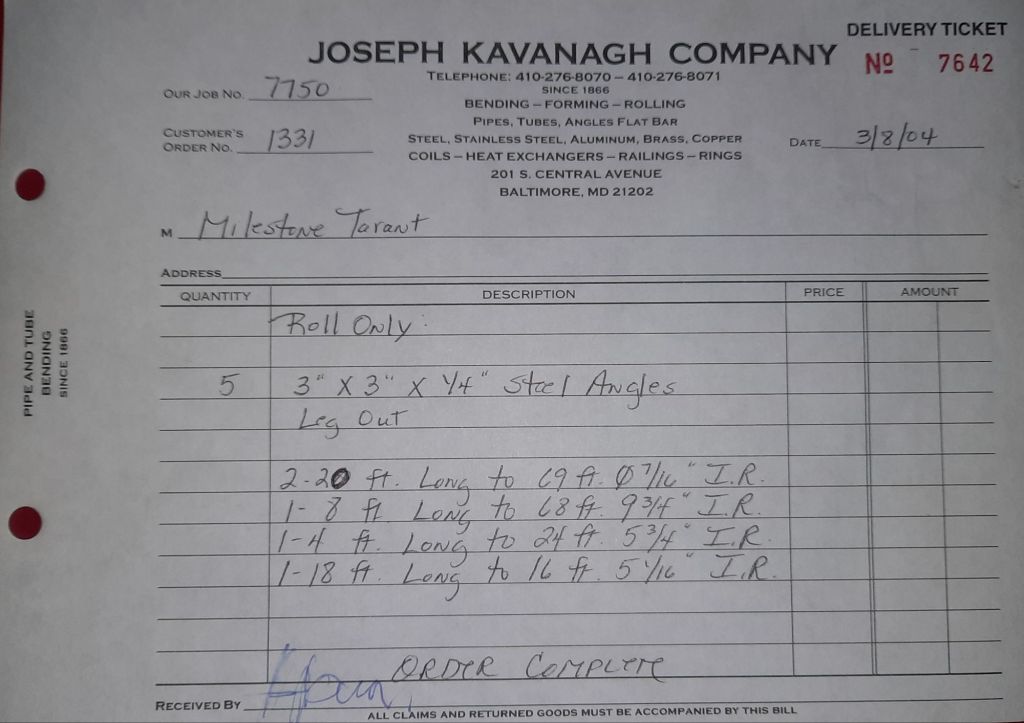 DELIVERY TICKET
JOSEPH KAVANAGH COMPANY
Nº 7642
TELEPHONE: 410-276-8070 – 410-276-8071
SINCE 1866
OUR JOB NO. 7750
BENDING – FORMING – ROLLING
PIPES, TUBES, ANGLES FLAT BAR
CUSTOMER'S
ORDER NO. 1331
STEEL, STAINLESS STEEL, ALUMINUM, BRASS, COPPER
DATE 3/8/04
COILS – HEAT EXCHANGERS – RAILINGS – RINGS
201 S. CENTRAL AVENUE
BALTIMORE, MD 21202
M Milestone Tarant
ADDRESS
QUANTITY DESCRIPTION PRICE AMOUNT
Roll Only:
5 3" X 3" X 1/4" Steel Angles
Leg Out
2-20 ft. Long to 69 ft. 0 7/16" I.R.
1- 8 ft. Long to 68 ft. 9 3/4" I.R.
1-4 ft. Long to 24 ft. 5 3/4" I.R.
1-18 ft. Long to 16 ft. 5 1/16" I.R.
ORDER COMPLETE
RECEIVED BY
ALL CLAIMS AND RETURNED GOODS MUST BE ACCOMPANIED BY THIS BILL
PIPE AND TUBE
BENDING
SINCE 1866